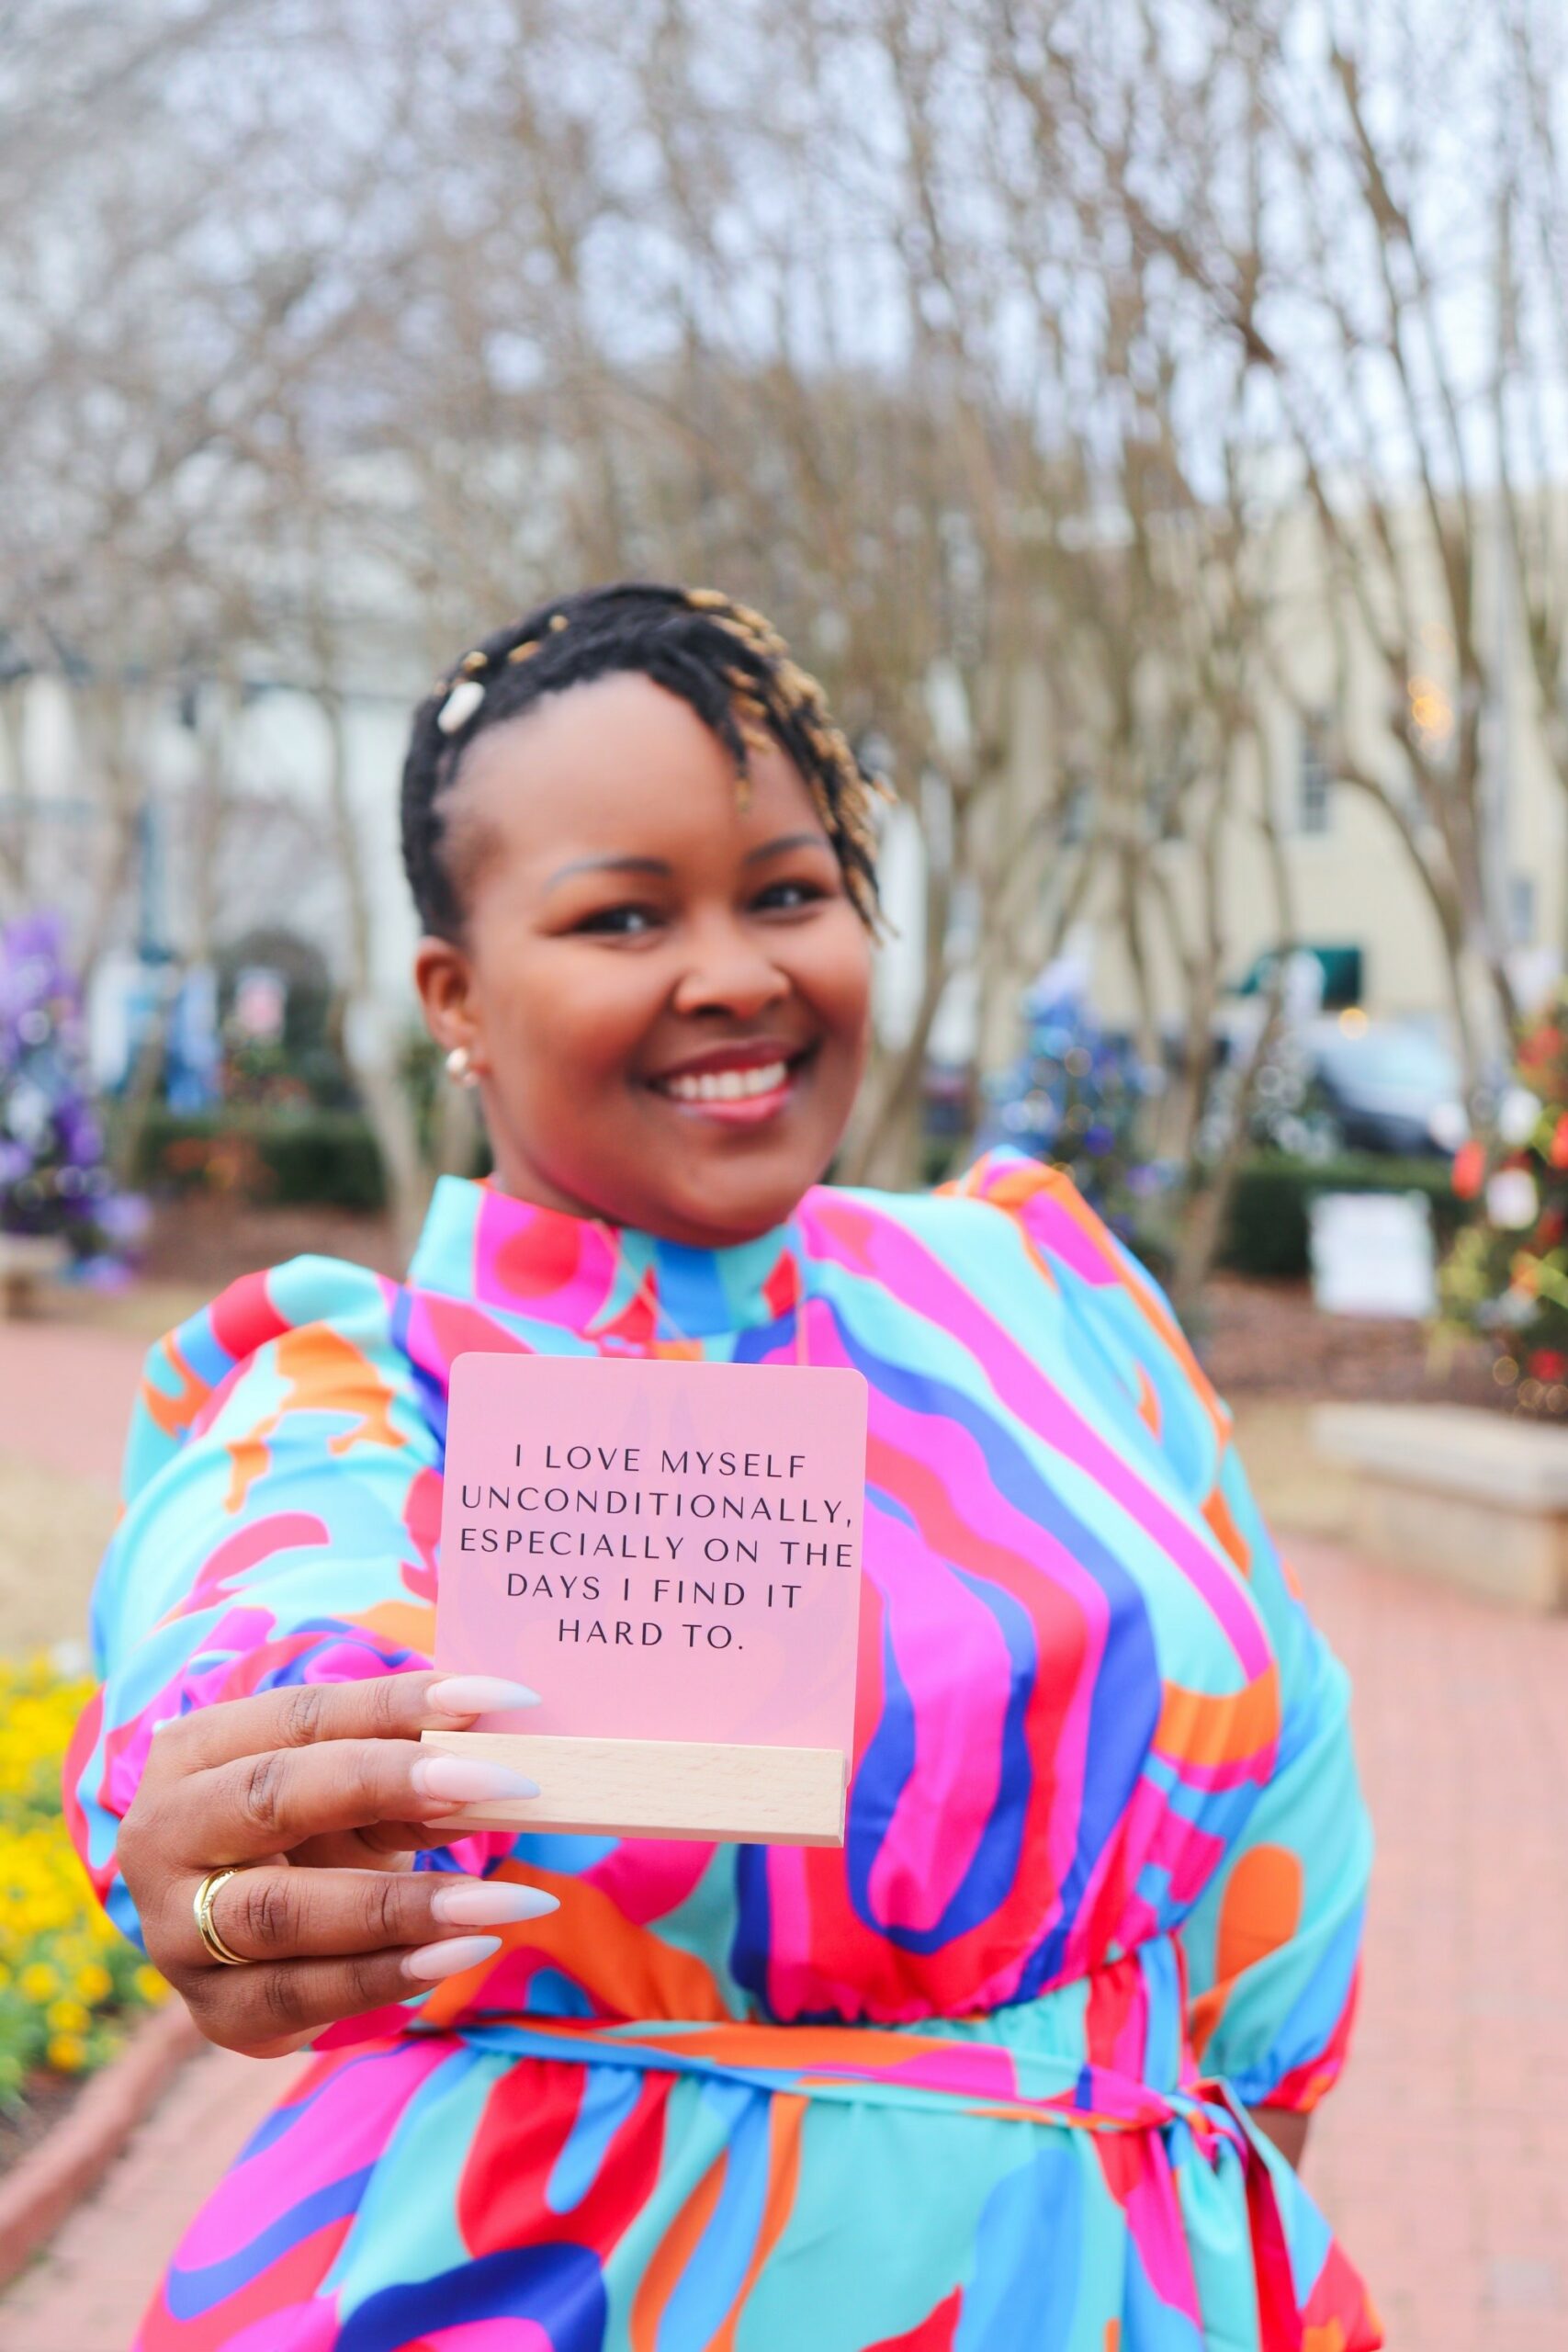 I LOVE MYSELF
UNCONDITIONALLY,
ESPECIALLY ON THE
DAYS I FIND IT
HARD TO.